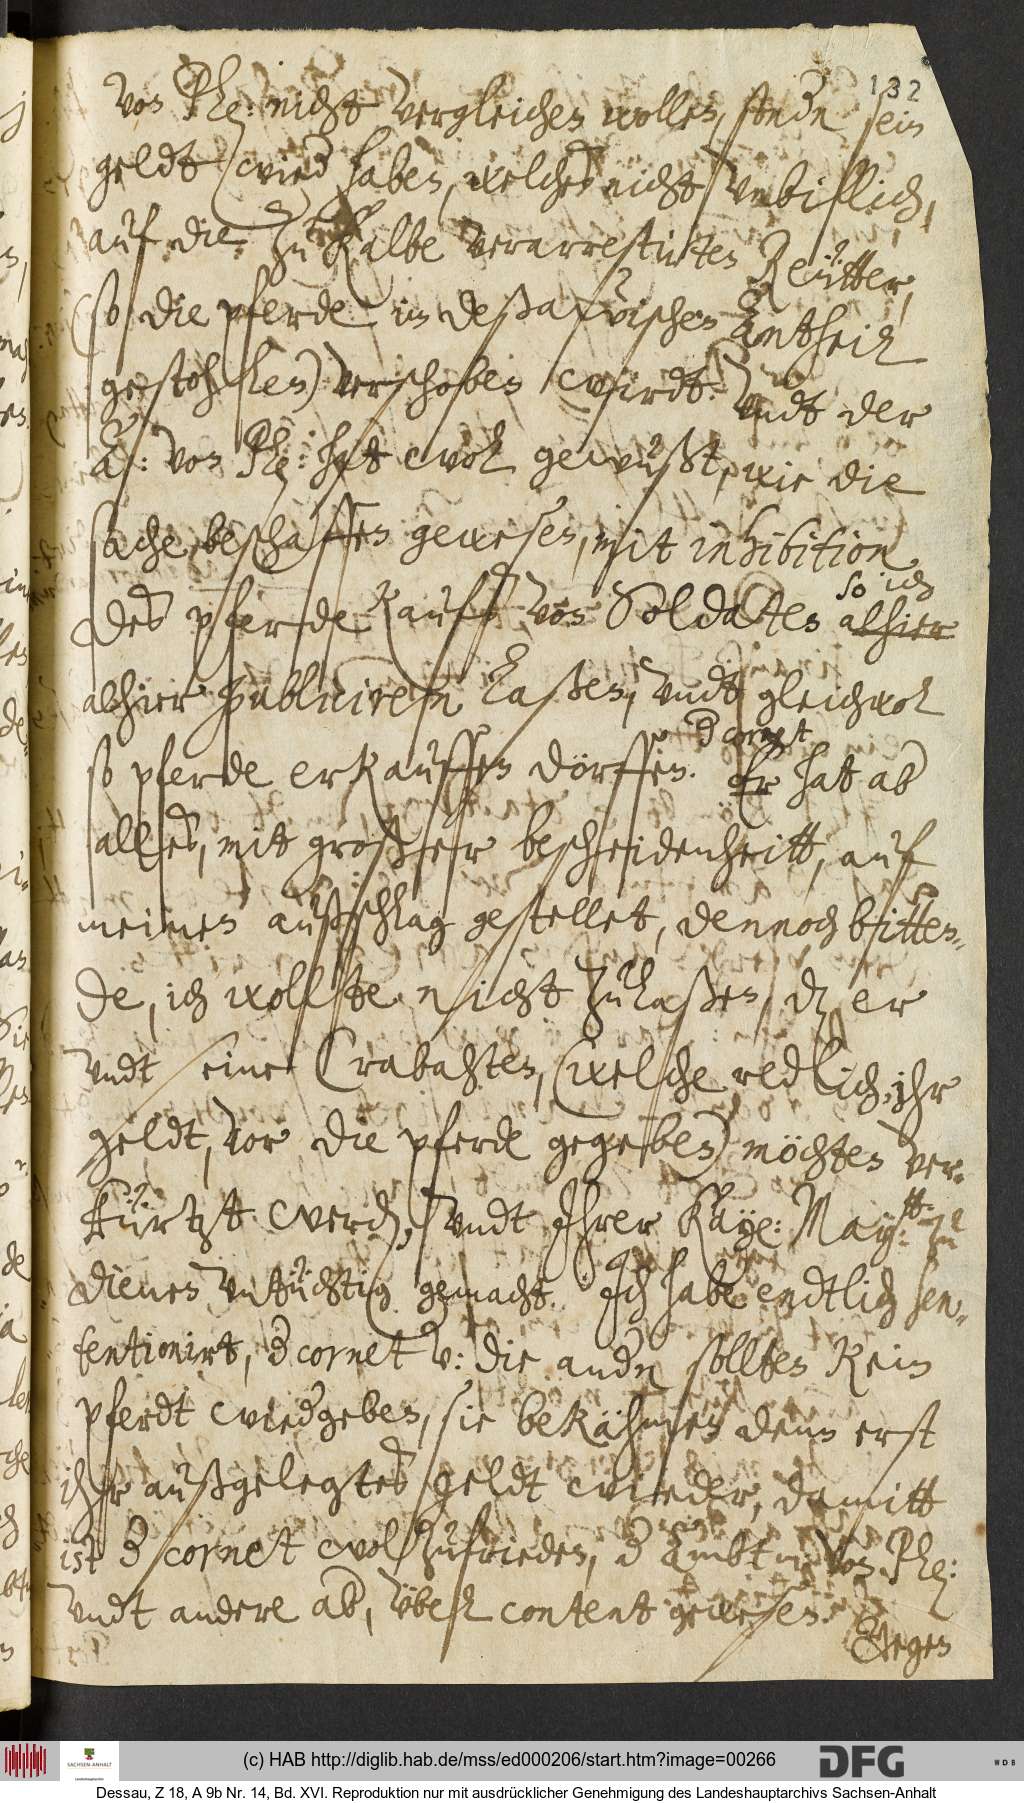 132
von Ple: nicht vergleichen wollen, sondern sein
geldt wieder haben, welches nicht vnbillich,
auf die zu Kalbe verarrestirten Reütter,
(so die pferde in deßawischen Antheil
gestohlen) verschoben wirdt. Vndt der
A: von Ple: hat wol gewußt, wie die
sache beschaffen gewesen, mit inhibition
des pferde Kauffs von Soldaten alhier
so ich
alhier publiciren laßen, vndt gleichwol
so pferde erkauffen dörffen. Er hat aber
der cornet
alles, mit großer bescheidenheitt, auf
meinen außschlag gestellet, dennoch bitten-
de, ich wollte nicht zulaßen, dz er
vndt seine Crabahten, (welche redlich, ihr
geldt, vor die pferde gegeben) möchten ver-
kürtzt werden, vndt Ihrer Kaye: Maytt: zu
dienen, vntüchtig gemacht. Ich habe endtlich sen-
tentionirt, der cornet v: die andern sollten kein
pferdt wiedergeben, sie bekähmen denn erst
ihr außgelegtes geldt wieder, damitt
ist der cornet wol zufrieden, der Ambtm: von Ple:
vndt andere aber, übel content gewesen.
Wegen
(c) HAB http://diglib.hab.de/mss/ed000206/start.htm?image=00266
SACHSEN-ANHALT
DFG
WDB
Dessau, Z 18, A 9b Nr. 14, Bd. XVI. Reproduktion nur mit ausdrücklicher Genehmigung des Landeshauptarchivs Sachsen-Anhalt